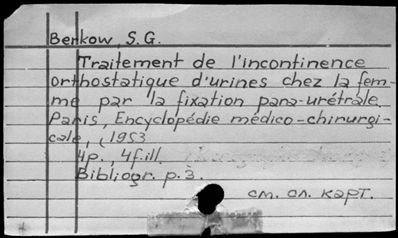 Berkow, S.G.
Traitement de l'incontinence
orthostatique d'urines chez la fem-
me par la fixation para-urétrale.
Paris, Encyclopédie médico-chirurgi-
cale, (1953
4p., 4f.ill.
Bibliogr. p.3.
см. сл. карт.